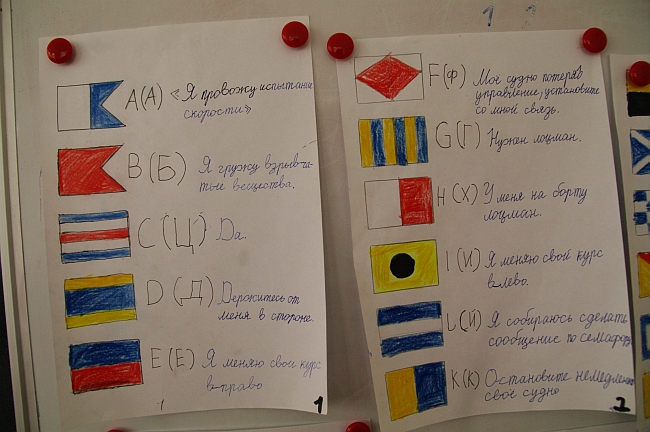 1
A(A) «Я провожу испытание
скорости»
B(Б) Я гружу взрывча-
тые вещества.
C(Ц) Да.
D(Д) Держитесь от
меня в стороне.
E(E) Я меняю свой курс
в-право
1
1
F(Ф) Моё судно потеряв
управление, установите
со мной связь.
G(Г) Нужен лоцман.
H(X) У меня на борту
лоцман.
I(И) Я меняю свой курс
в-лево.
L(Й) Я собираюсь сделать
сообщение по семафору
K(K) Остановите немедленно
своё судно
2